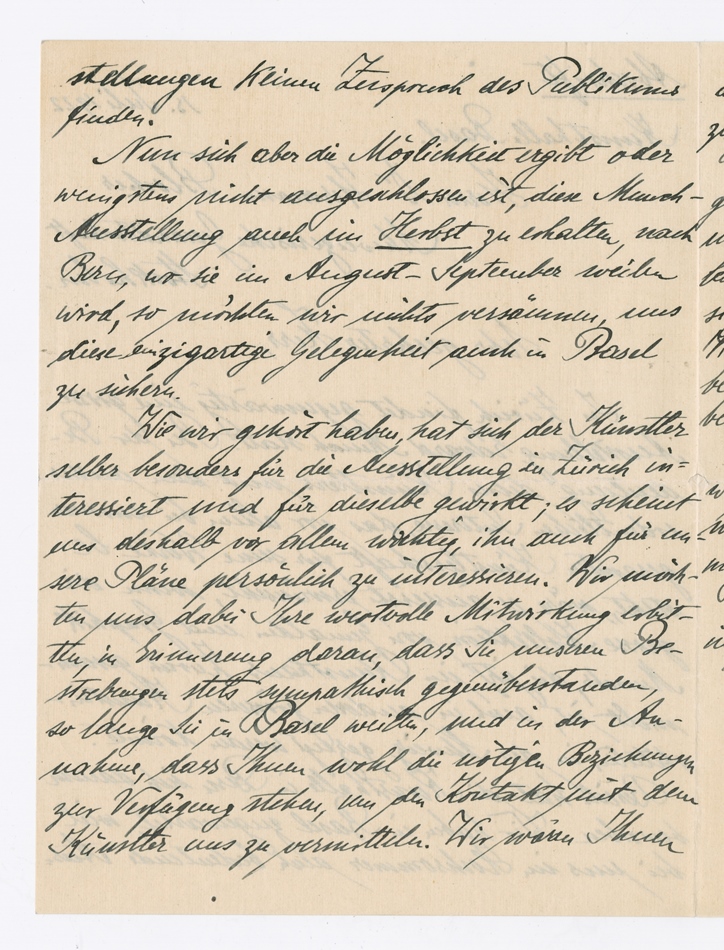 stellungen keinen Zuspruch des Publikums
finden.
Nun sich aber die Möglichkeit ergibt oder
wenigstens nicht ausgeschlossen ist, diese Munch-
Ausstellung auch im Herbst zu erhalten, nach
Bern, wo sie im August-September weilen
wird, so möchten wir nichts versäumen, uns
diese einzigartige Gelegenheit auch in Basel
zu sichern.
Wie wir gehört haben, hat sich der Künstler
selber besonders für die Ausstellung in Zürich in=
teressiert und für dieselbe gewirkt; es scheint
uns deshalb vor allem wichtig, ihn auch für un-
sere Pläne persönlich zu interessieren. Wir möch-
ten uns dabei Ihre wertvolle Mitwirkung erbit-
ten, in Erinnerung daran, dass Sie unseren Be-
strebungen stets sympathisch gegenüberstanden,
so lange Sie in Basel weilten, und in der An-
nahme, dass Ihnen wohl die nötigen Beziehungen
zur Verfügung stehen, um den Kontakt mit dem
Künstler uns zu vermitteln. Wir wären Ihnen